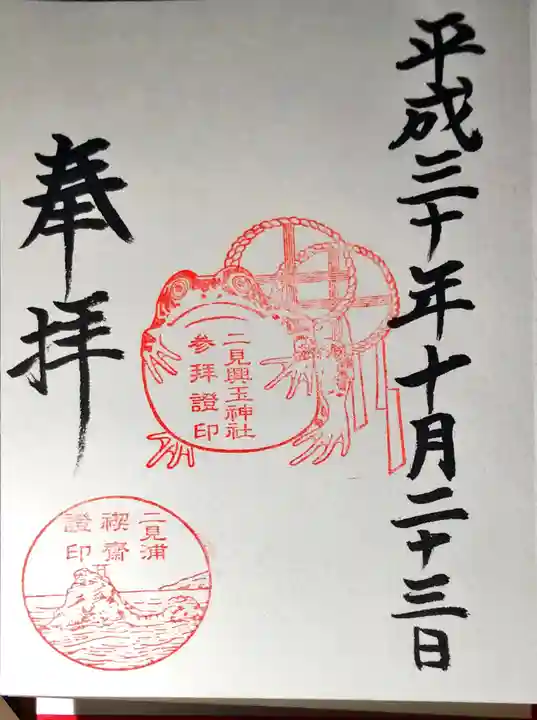 平成三十年十月二十三日
二見興玉神社
参拜證印
奉拝
二見浦
禊齋
證印